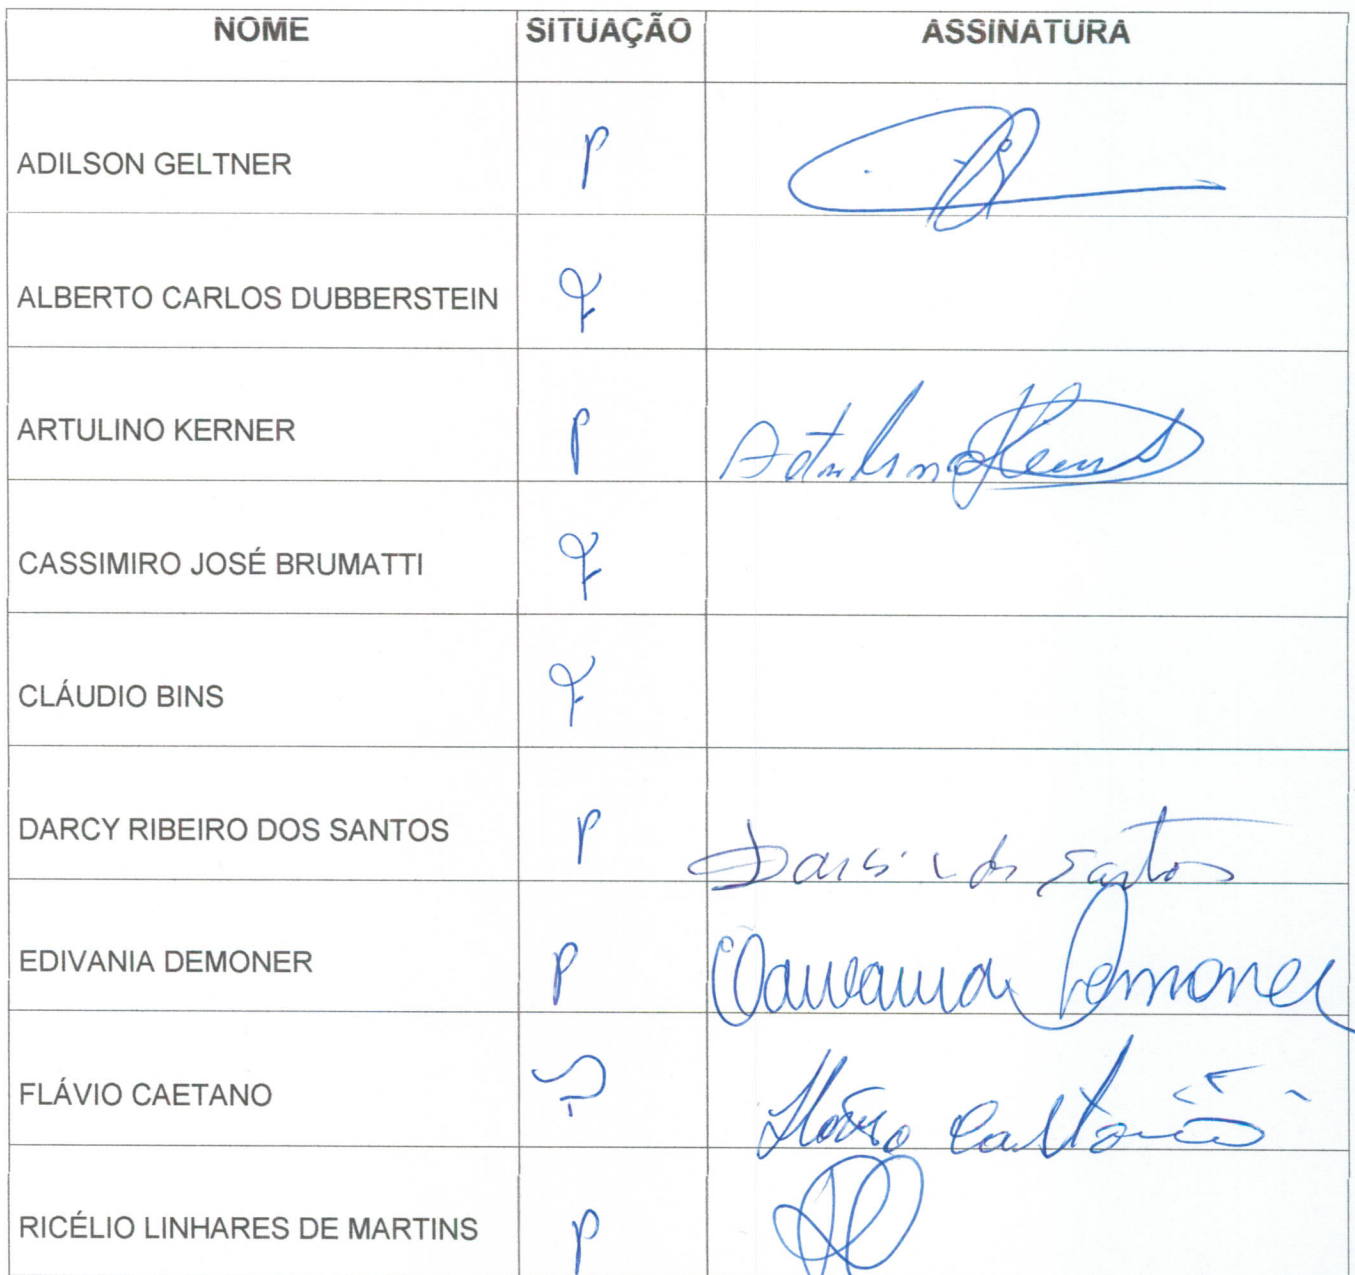 NOME SITUAÇÃO ASSINATURA
ADILSON GELTNER P
ALBERTO CARLOS DUBBERSTEIN F
ARTULINO KERNER P Artulino Kerner
CASSIMIRO JOSÉ BRUMATTI F
CLÁUDIO BINS F
DARCY RIBEIRO DOS SANTOS P Darci dos Santos
EDIVANIA DEMONER P Demoner
FLÁVIO CAETANO Flávio Caetano
RICÉLIO LINHARES DE MARTINS P